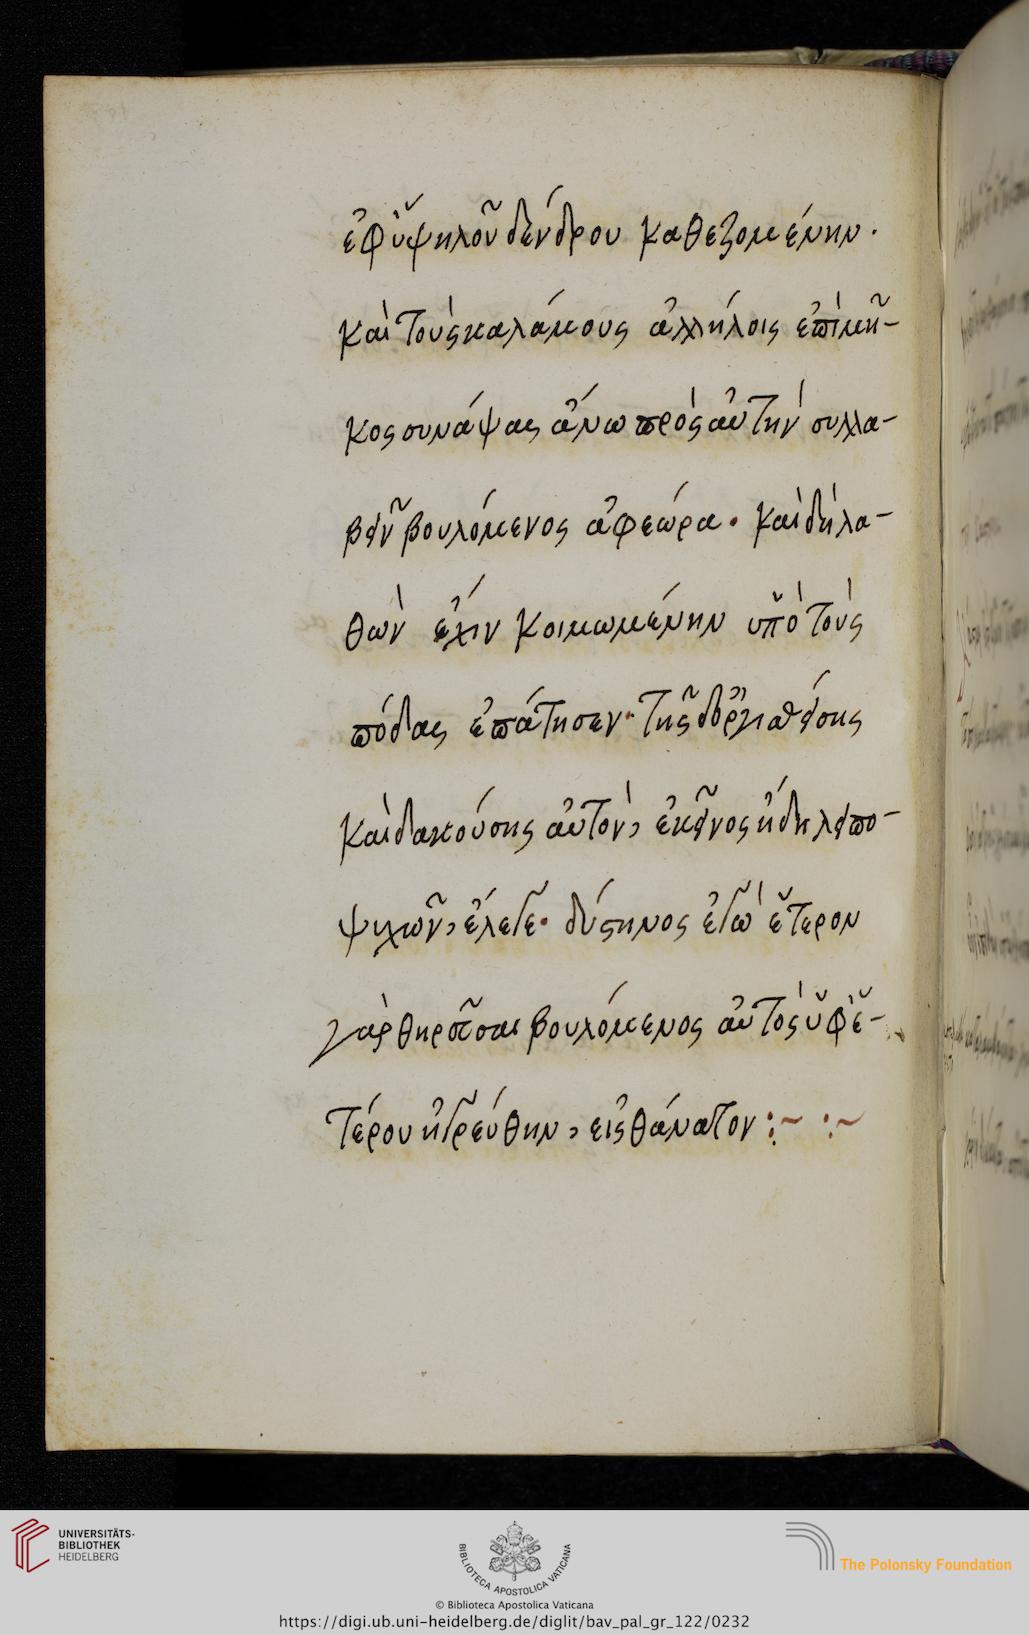 ἐφ ὑψηλοῦ δένδρου καθεζομένην.
καὶ τοὺς καλάμους ἀλλήλοις ἐπὶ μῆ-
κος συνάψας ἄνω πρὸς αὐτὴν συλλα-
βεῖν βουλόμενος ἀφεώρα. καὶ δὴ λα-
θὼν ἔχιν κοιμωμένην ὑπὸ τοὺς
πόδας ἐπάτησεν. τῆς δ ὀργισθείσης
καὶ δακούσης αὐτὸν, ἐκεῖνος ἤδη λειπο-
ψυχῶν, ἔλεγε. δύστηνος ἐγὼ ἕτερον
γὰρ θηρᾶσαι βουλόμενος αὐτὸς ὑφ ἑ-
τέρου ἠγρεύθην, εἰς θάνατον :~ :~
UNIVERSITÄTS-
BIBLIOTHEK
HEIDELBERG
BIBLIOTECA APOSTOLICA VATICANA
The Polonsky Foundation
© Biblioteca Apostolica Vaticana
https://digi.ub.uni-heidelberg.de/diglit/bav_pal_gr_122/0232